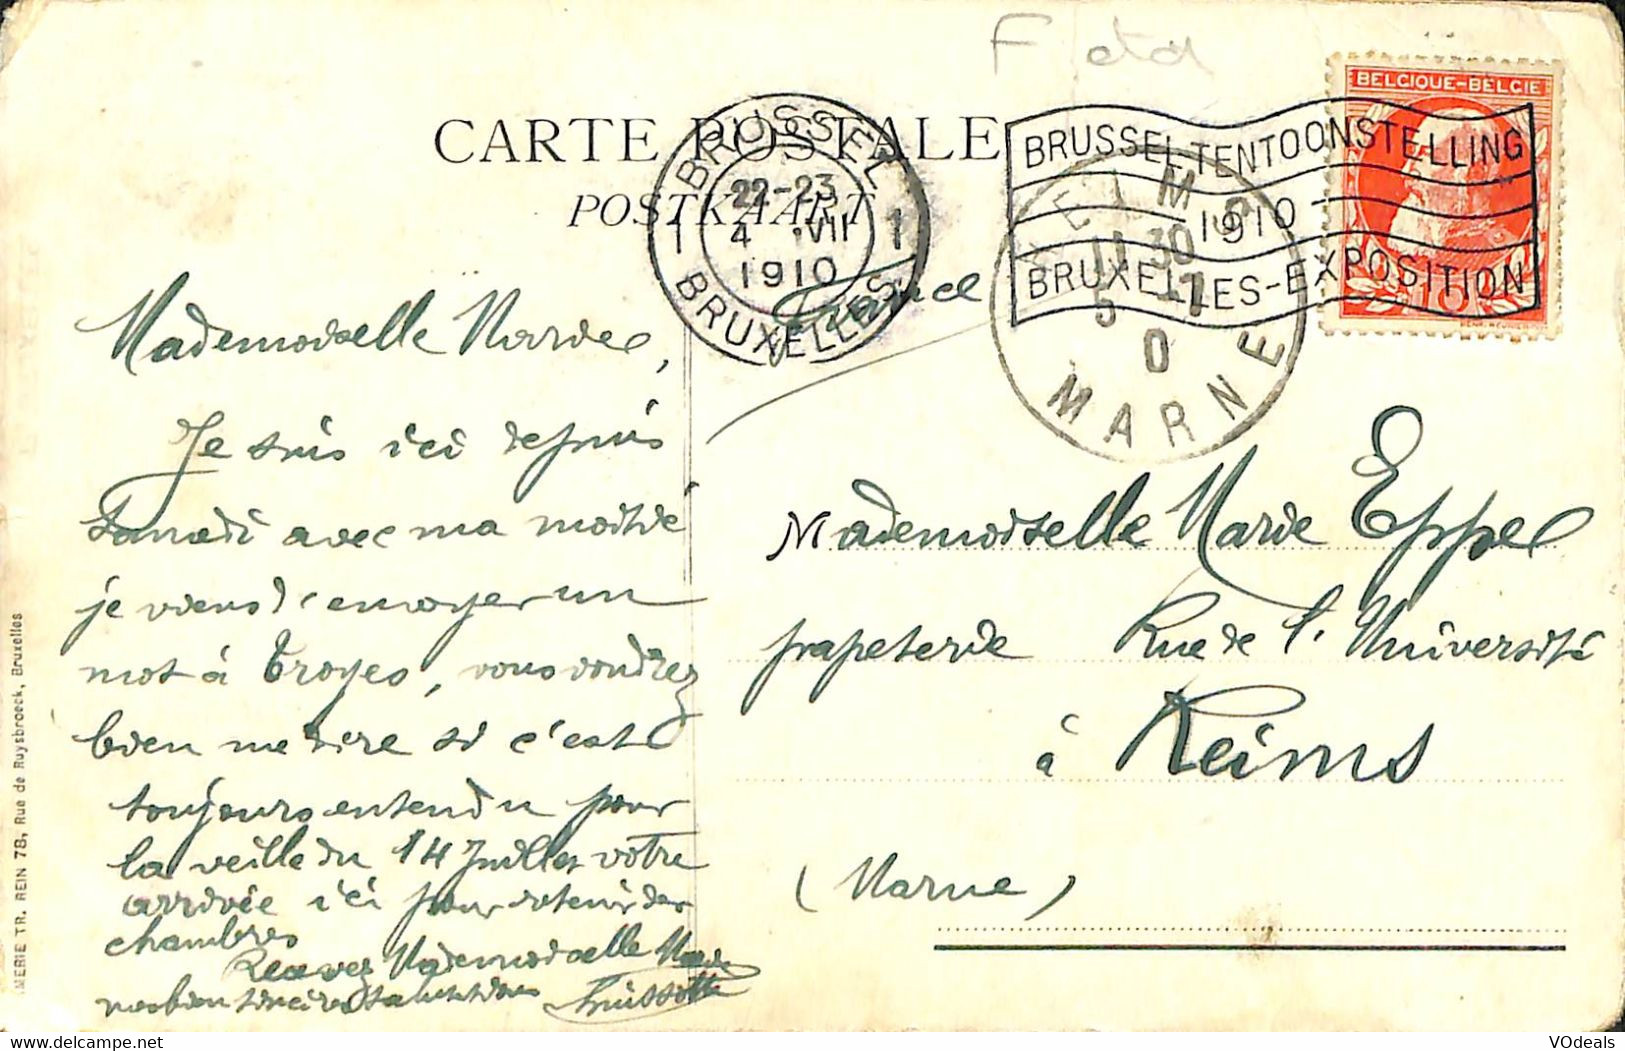 F
CARTE POSTALE
POSTKAART
BRUSSEL
22-23
4 VII
1910
1 1
BRUXELLES
BRUSSEL-TENTOONSTELLING
1910
BRUXELLES-EXPOSITION
BELGIQUE-BELGIE
10
REIMS
11 30
5 -7
0
MARNE
Mademoiselle Marie,
Je suis ici depuis
samedi avec ma moitié
je viens d'envoyer un
mot à Troyes, vous voudrez
bien me dire si c'est
toujours entendu pour
la veille du 14 Juillet votre
arrivée ici pour retenir des
chambres
Recevez Mademoiselle Marie
nos bien sincères salutations
France
Mademoiselle Marie Eppel
papeterie Rue de l'Université
à Reims
(Marne)
MERIE TR. REIN 78, Rue de Ruysbroeck, Bruxelles
VOdeals